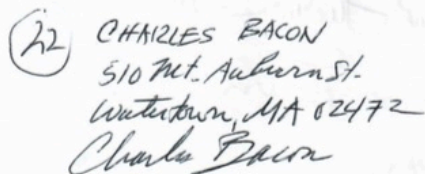 22 CHARLES BACON
510 Mt. Auburn St.
Watertown, MA 02472
Charles Bacon